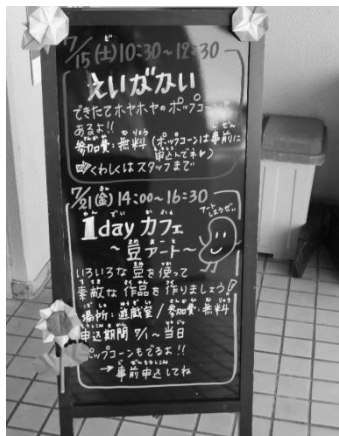 7/15(土)10:30~12:30
えいがかい
できたてホヤホヤのポップコーンも
あるよ!!
参加費:無料(ポップコーンは事前に
申込んでネ♪)
⇨くわしくはスタッフまで
7/21(金)14:00~16:30
1dayカフェ
~豆アート~
アートしようぜい
いろいろな豆を使って
素敵な作品を作りましょう!
場所:遊戯室/参加費:無料
申込期間 7/1~当日
ポップコーンもでるよ!!
→事前申込してね